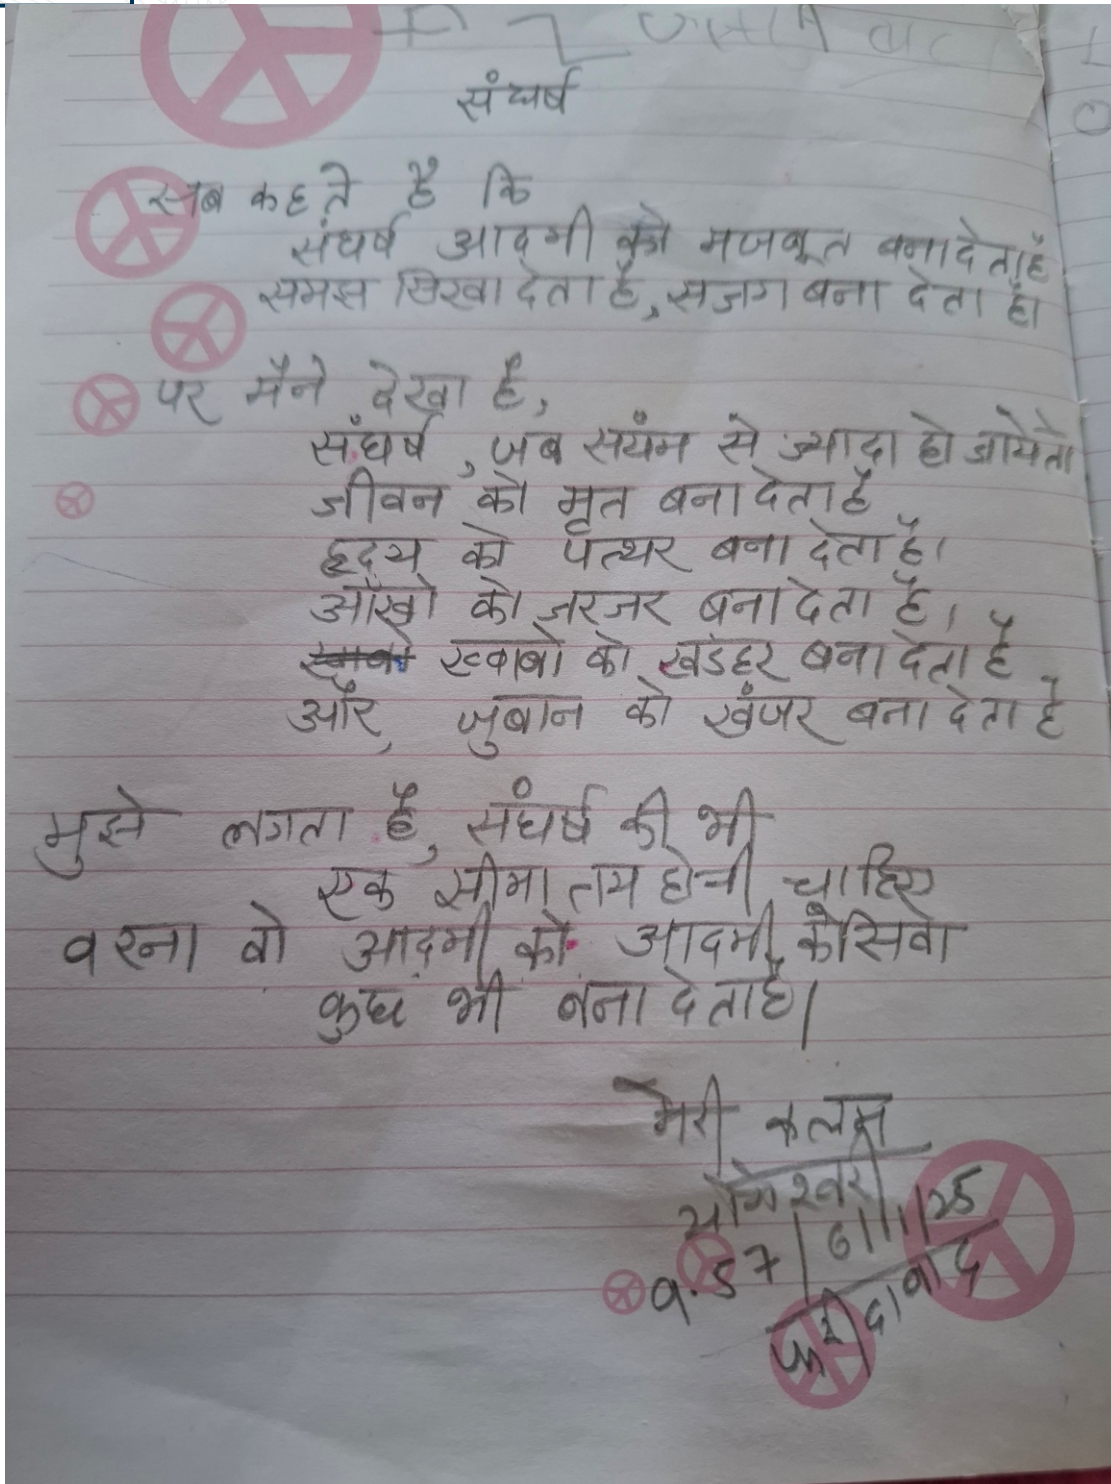 संघर्ष
सब कहते है कि
संघर्ष आदमी को मजबूत बना देता है
समझ सिखा देता है, सजग बना देता है।
पर मैने देखा है,
संघर्ष, जब सयंम से ज्यादा हो जाये तो
जीवन को मृत बना देता है
हृदय को पत्थर बना देता है।
आँखो को जरजर बना देता है।
ख्वाबो को खंडहर बना देता है
और, जुबान को खंजर बना देता है
मुझे लगता है, संघर्ष की भी
एक सीमा तय होनी चाहिए
वरना वो आदमी को आदमी के सिवा
कुछ भी बना देता है।
मेरी कलम
योगेश्वरी
9.57 | 6/11/25
फरीदाबाद